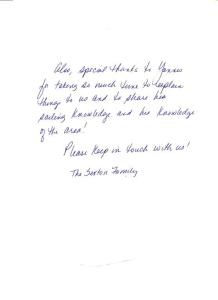 Also, special thanks to Yannis
for taking so much time to explain
things to us and to share his
sailing knowledge and his knowledge
of the area!
Please keep in touch with us!
The Sexton Family